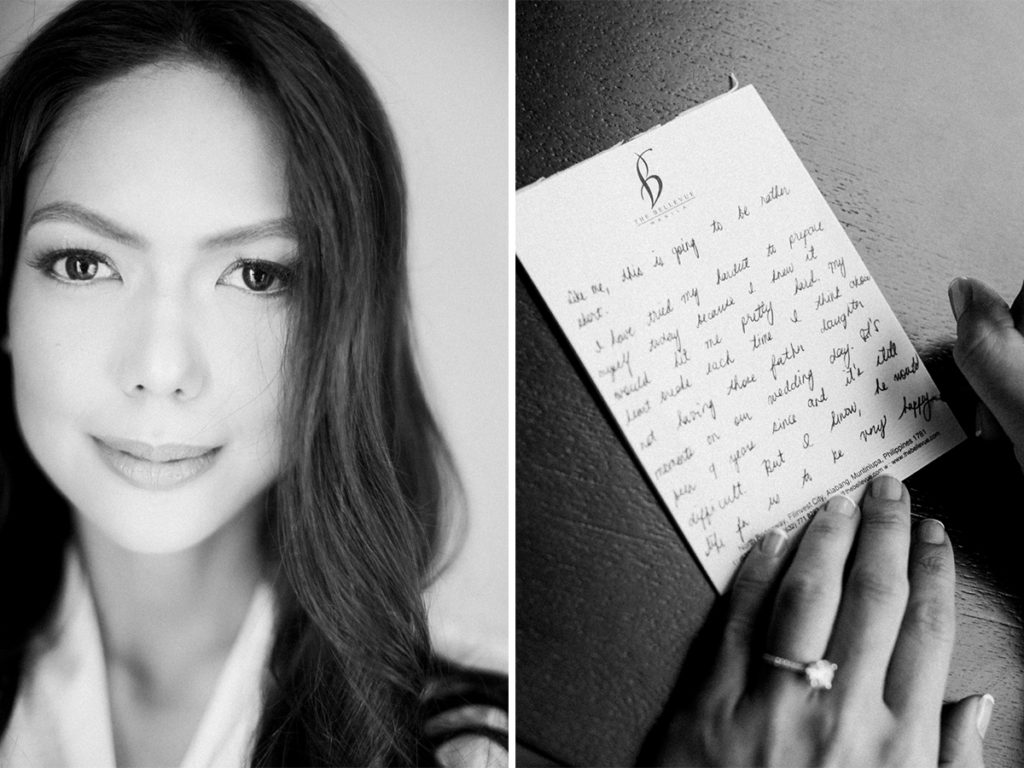 THE BELLEVUE
MANILA
Like me, this is going to be rather
short.
I have tried my hardest to prepare
myself today because I knew it
would hit me pretty hard. My
heart breaks each time I think about
not having those father daughter
moments on our wedding day. It's
been 9 years since and it's still
difficult. But I know, he would
life for us to be very happy
North Bridgeway, Filinvest City, Alabang, Muntinlupa, Philippines 1781
(632) 771 www.thebellevue.com